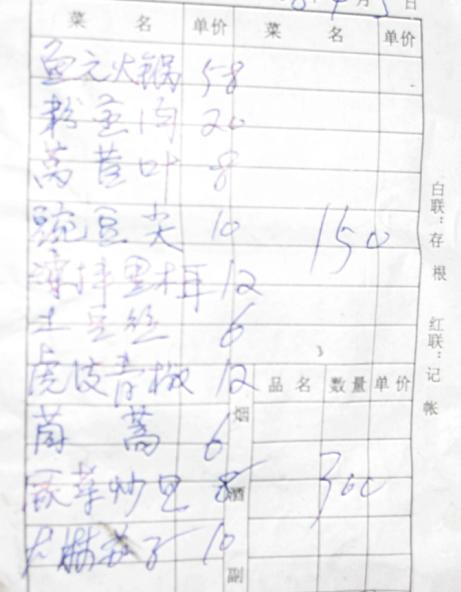 月 5 日
菜 名 单价 菜 名 单价
鱼元火锅 58
粉蒸肉 20
莴苣叶 8
豌豆尖 10
150
凉拌黑木耳 12
土豆丝 6
虎皮青椒 12
品名 数量 单价
茼蒿 6
烟
酒
300
10
副
白联：存根 红联：记帐